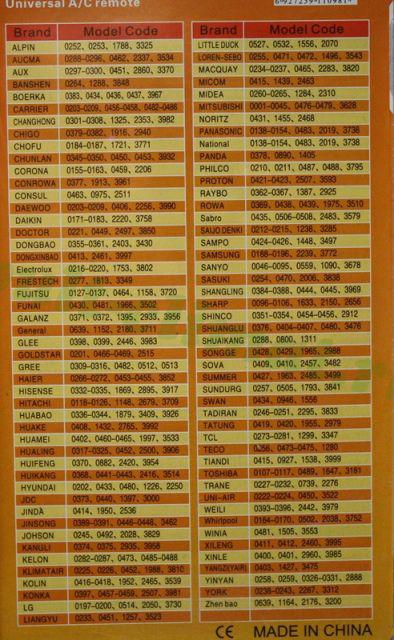 Universal A/C remote
Brand Model Code
ALPIN 0252、0253、1788、3325
AUCMA 0288-0296、0462、2337、3534
AUX 0297-0300、0451、2860、3370
BANSHEN 0264、1288、3648
BOERKA 0383、0434、0436、0437、3967
CARRIER 0203-0209、0456-0458、0482-0486
CHANGHONG 0301-0308、1325、2353、3982
CHIGO 0379-0382、1916、2940
CHOFU 0184-0187、1721、3771
CHUNLAN 0345-0350、0450、0453、3932
CORONA 0155-0163、0459、2206
CONROWA 0377、1913、3961
CONSUL 0463、0975、2511
DAEWOO 0203-0209、0406、2256、3990
DAIKIN 0171-0183、2220、3758
DOCTOR 0221、0449、2497、3850
DONGBAO 0355-0361、2403、3430
DONGXINBAO 0413、2461、3997
Electrolux 0216-0220、1753、3802
FRESTECH 0277、1813、3349
FUJITSU 0127-0137、0464、1158、3720
FUNAI 0430、0481、1966、3502
GALANZ 0371、0372、1395、2933、3956
General 0639、1152、2180、3711
GLEE 0398、0399、2446、3983
GOLDSTAR 0201、0466-0469、2515
GREE 0309-0316、0482、0512、0513
HAIER 0266-0272、0453-0455、3852
HISENSE 0332-0335、1869、2895、3917
HITACHI 0118-0126、1148、2679、3709
HUABAO 0336-0344、1879、3409、3926
HUAKE 0408、1432、2765、3992
HUAMEI 0402、0460-0465、1997、3533
HUALING 0317-0325、0452、2500、3906
HUIFENG 0370、0882、2420、3954
HUIKANG 0368、0441-0443、2416、3514
HYUNDAI 0202、0433、0480、1226、2250
JDC 0373、0440、1397、3000
JINDA 0414、1950、2536
JINSONG 0389-0391、0446-0448、3462
JOHSON 0245、0492、2028、3829
KANGLI 0374、0375、2935、3958
KELON 0282-0287、0473、0485-0488
KLIMATAIR 0225、0226、0452、1988、3810
KOLIN 0416-0418、1952、2465、3539
KONKA 0397、0457-0459、2507、3981
LG 0197-0200、0514、2050、3730
LIANGYU 0233、0451、1257、3523
Brand Model Code
LITTLE DUCK 0527、0532、1556、2070
LOREN-SEBO 0255、0471、0472、1496、3543
MACQUAY 0234-0237、0465、2283、3820
MICOM 0415、1439、2463
MIDEA 0260-0265、1284、2310
MITSUBISHI 0001-0045、0476-0479、3628
NORITZ 0431、1455、2468
PANASONIC 0138-0154、0483、2019、3738
National 0138-0154、0483、2019、3738
PANDA 0378、0890、1405
PHILCO 0210、0211、0487、0488、3795
PROTON 0421-0423、2507、3593
RAYBO 0362-0367、1387、2925
ROWA 0369、0438、0439、1975、3510
Sabro 0435、0506-0508、2483、3579
SAIJO DENKI 0212-0215、1238、3285
SAMPO 0424-0426、1448、3497
SAMSUNG 0188-0196、2239、3772
SANYO 0046-0095、0559、1090、3678
SASUKI 0254、0470、2006、3838
SHANGLING 0384-0388、0444、0445、3969
SHARP 0096-0106、1633、2150、2656
SHINCO 0351-0354、0454-0456、2912
SHUANGLU 0376、0404-0407、0480、3476
SHUAIKANG 0288、0800、1311
SONGGE 0428、0429、1965、2988
SOVA 0409、0410、2457、3482
SUMMER 0427、1963、2485、3499
SUNDURG 0257、0505、1793、3841
SWAN 0434、0946、1556
TADIRAN 0246-0251、2295、3833
TATUNG 0419、0420、1955、2979
TCL 0273-0281、1299、3347
TECO 0256、0473-0475、1280
TIANDI 0415、0927、1538、3999
TOSHIBA 0107-0117、0489、1647、3181
TRANE 0227-0232、0739、2276
UNI-AIR 0222-0224、0450、3522
WEILI 0393-0396、2442、3979
Whirlpool 0164-0170、0502、2038、3752
WINIA 0481、1505、3553
XILENG 0411、0412、2460、3995
XINLE 0400、0401、2960、3985
YANGZI(YAIR) 0403、1427、3475
YINYAN 0258、0259、0326-0331、2888
YORK 0238-0243、2287、3312
Zhen bao 0639、1164、2176、3200
CE MADE IN CHINA